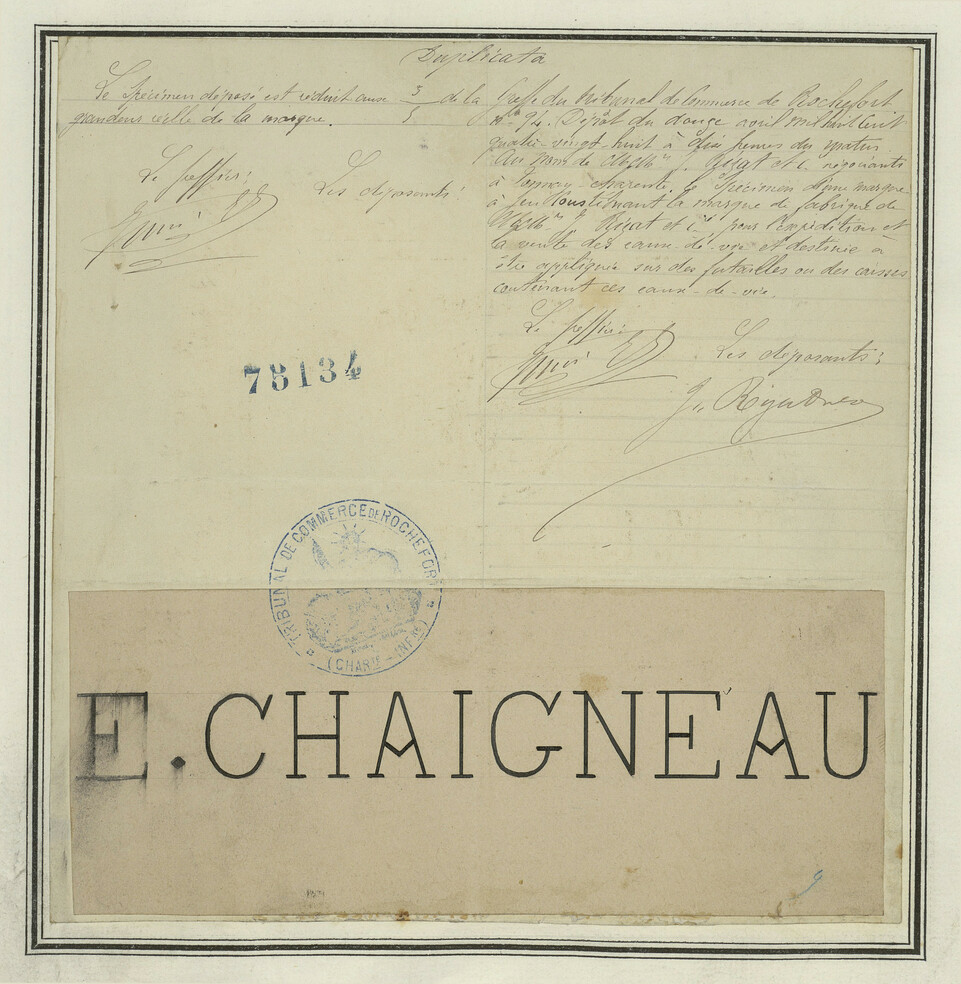 Duplicata
Le Spécimen déposé est réduit aux 3/5 de la
grandeur réelle de la marque.
Le Greffier:
Les déposants:
Greffe du Tribunal de Commerce de Rochefort
n° 94. Dépôt du douze avril mil huit cent
quatre-vingt-huit à dix heures du matin
Au nom de et Cie négociants
à Tonnay-Charente, le Spécimen d'une marque
à feu constituant la marque de fabrique de
et Cie, pour l'expédition et
la vente des eaux-de-vie et destinée à
être appliquée sur des futailles ou des caisses
contenant ces eaux-de-vie.
Le Greffier:
Les déposants:
78134
TRIBUNAL DE COMMERCE DE ROCHEFORT
(CHARTE-INFRE)
E. CHAIGNEAU